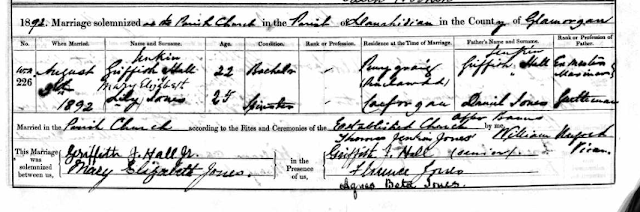 1892. Marriage solemnized at the Parish Church in the Parish of Llanrhidian in the County of Glamorgan
No. When Married. Name and Surname. Age. Condition. Rank or Profession. Residence at the Time of Marriage. Father's Name and Surname. Rank or Profession of Father.
226 August 9th 1892
Jenkin
Griffith Hall 22 Bachelor Penygraig Jenkin Griffith Hall Master Mariner
Mary Elizabeth
Jones 25 Spinster Daniel Jones Gentleman
Married in the Parish Church according to the Rites and Ceremonies of the Established Church after Banns by me,
This Marriage was solemnized between us,
Griffith J. Hall Jr.
Mary Elizabeth Jones.
in the Presence of us,
Thomas Jenkin Jones
Griffith J. Hall (senior)
Florence Jones
Agnes Jones.
William
Vicar.